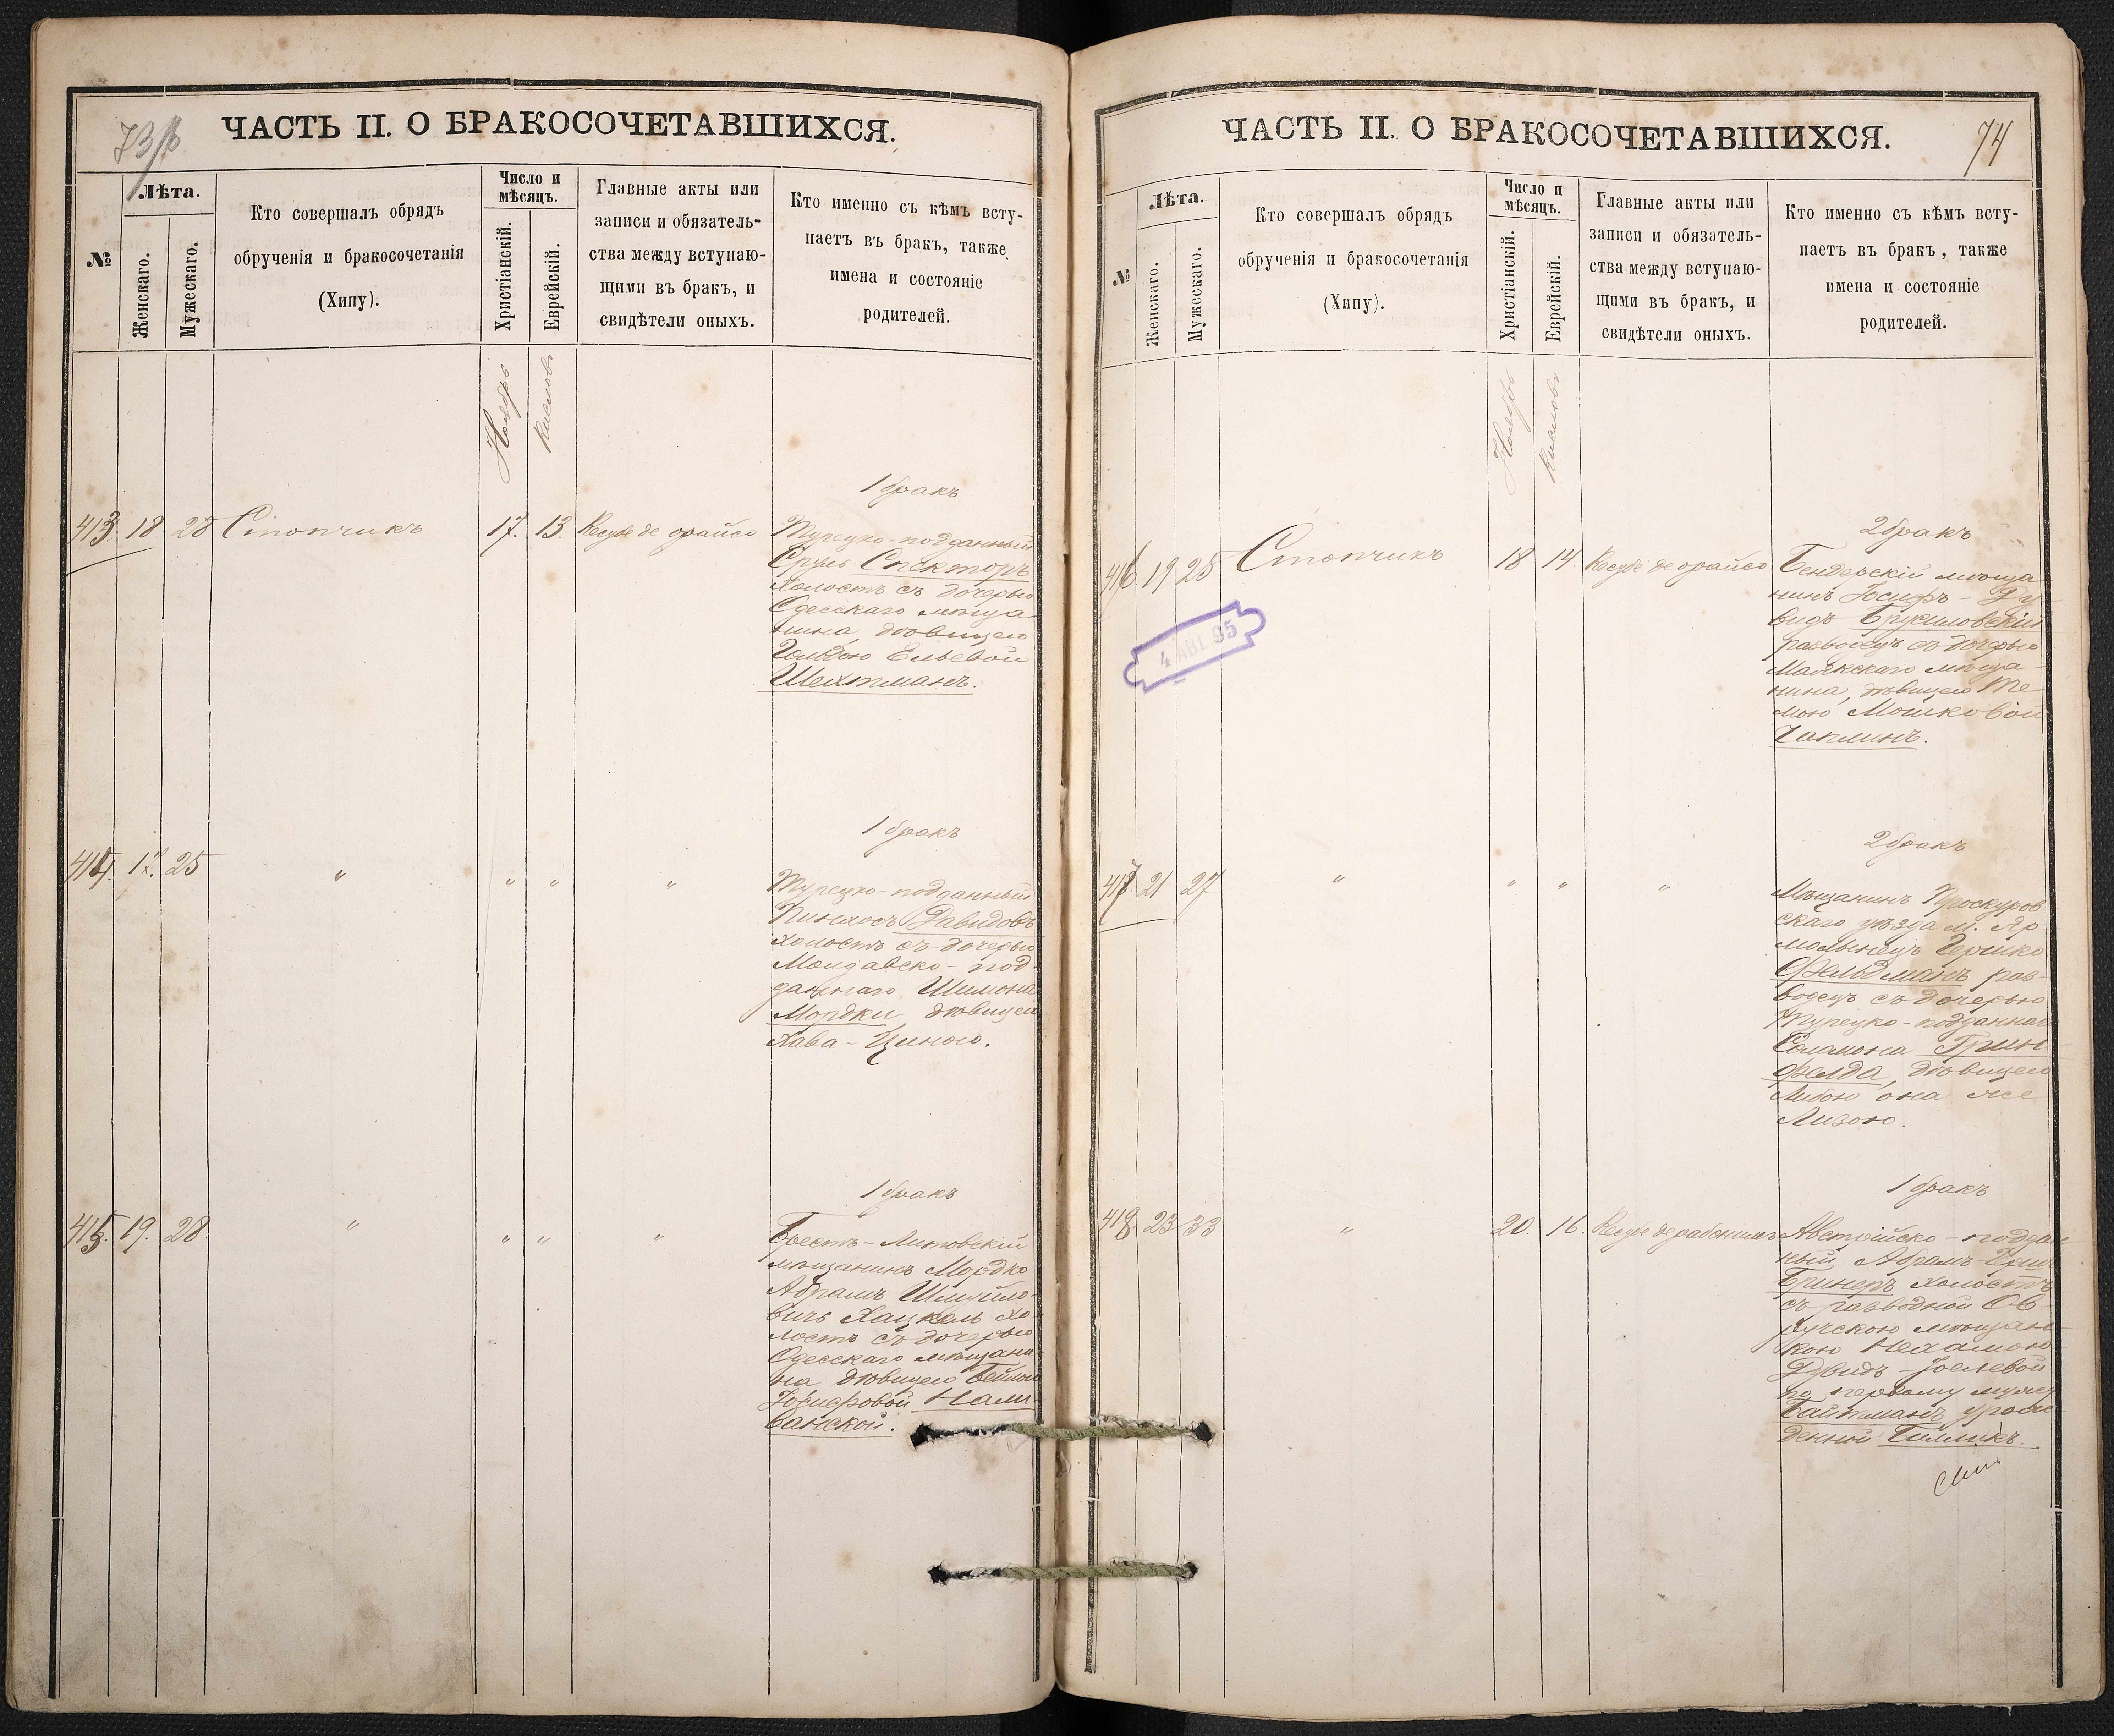 73/б
ЧАСТЬ II. О БРАКОСОЧЕТАВШИХСЯ.
№
Лѣта.
Женскаго.
Мужескаго.
Кто совершалъ обрядъ
обрученія и бракосочетанія
(Хипу).
Число и
мѣсяцъ.
Христіанскій.
Еврейскій.
Главные акты или
записи и обязатель-
ства между вступаю-
щими въ бракъ, и
свидѣтели оныхъ.
Кто именно съ кѣмъ всту-
паетъ въ бракъ, также
имена и состояніе
родителей.
Ноябрь
Кисловъ
1 бракъ
413. 18 28 Стопчикъ 17. 13. Кесубе де орайсо Турецко-подданный
Сруль Спекторъ
холостъ съ дочерью
Одесскаго мѣща-
нина, дѣвицею
Гольдою Ельевой
Шехтманъ.
1 бракъ
414. 17. 25 " " " " Турецко-подданный
Пинхосъ Давидовъ
холостъ съ дочерью
Молдавско-под-
даннаго Шимона
Мордки дѣвицею
Хава-Циною.
1 бракъ
415. 19. 28. " " " " Брестъ-Литовскій
мѣщанинъ Мордко
Абрамъ Шмуйло-
вичъ Хацкель хо-
лостъ съ дочерью
Одесскаго мѣщани-
на дѣвицею Бейлою
Іосифовой Нали-
банской.
ЧАСТЬ II. О БРАКОСОЧЕТАВШИХСЯ.
74
№
Лѣта.
Женскаго.
Мужескаго.
Кто совершалъ обрядъ
обрученія и бракосочетанія
(Хипу).
Число и
мѣсяцъ.
Христіанскій.
Еврейскій.
Главные акты или
записи и обязатель-
ства между вступаю-
щими въ бракъ, и
свидѣтели оныхъ.
Кто именно съ кѣмъ всту-
паетъ въ бракъ, также
имена и состояніе
родителей.
Ноябрь
Кисловъ
2 бракъ
416 19 25 Стопчикъ 18 14. Кесубе де орайсо Бендерскій мѣща-
нинъ Іосифъ-Ду
видъ Брусиловскій
разводецъ съ дочерью
Маякскаго мѣща-
нина, дѣвицею Те-
мою Мошковой
Чаплинъ.
4 АВГ. 95
2 бракъ
417 21 27 " " " " Мѣщанинъ Проскуров
скаго уѣзда м. Яр
молынецъ Гершко
Фельдманъ раз-
водецъ съ дочерью
Турецко-подданнаго
Соломона Грин-
фелда, дѣвицею
Либою она же
Лизою.
1 бракъ
418. 23 33 " 20. 16. Кесубе де рабонимъ Австрійско-поддан
ный Абрамъ-
Бринеръ холостъ
съ разводной Ов-
ручскою мѣщан-
кою Нехамою
Дувидъ-Іоелевой
по первому мужу
Байтманъ урож
денной Гилликъ.